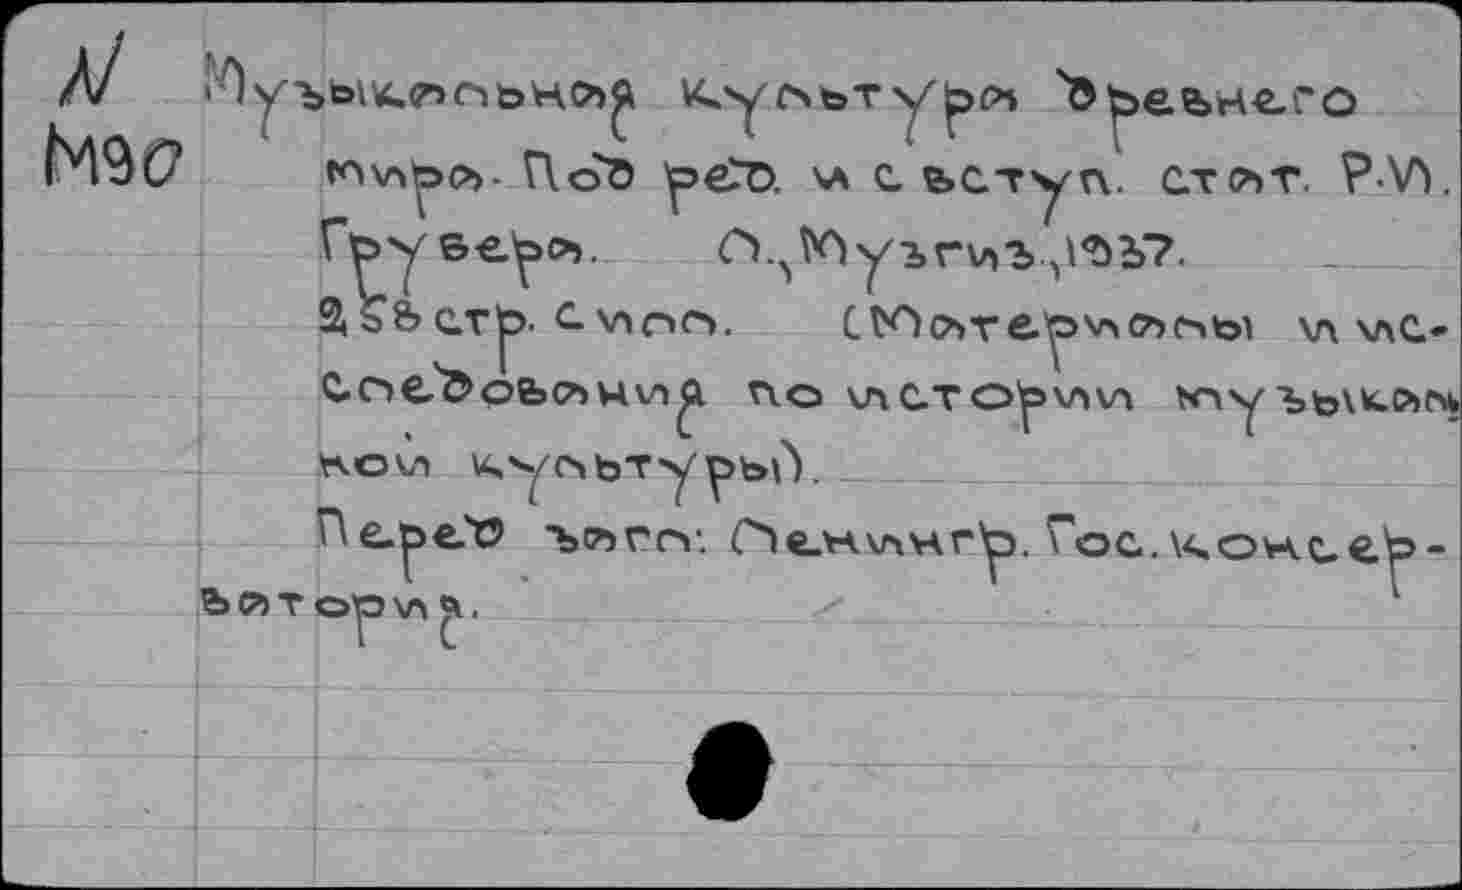 N Музыкальная культура древнего
М90 мира. Под ред. и с вступ. стат. Р.И.
Грубера. Л., Музгиз, 1937.
258 стр. с илл. (Материалы и ис-
следования по истории музыкаль
ной культуры).
Перед загл: Ленингр. Гос. консер-
ватория.